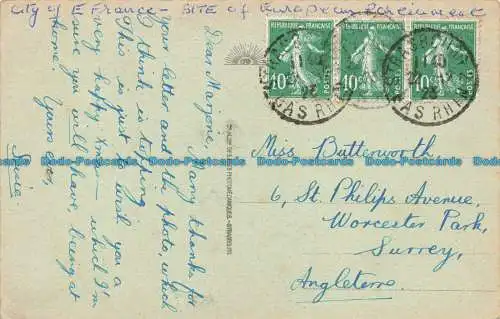 City of E France - SITE of European Parliament
Dear Margorie, Many thanks for
your letter and the photo, which
I think is topping.
This is just to wish you a
very happy Xmas - which I'm
sure you will have being at
home.
Yours ever,
REPUBLIQUE FRANCAISE
10c
REPUBLIQUE FRANCAISE
10c
REPUBLIQUE FRANCAISE
10c
STRASBOURG
BAS RHIN
Miss Butterworth
6, St. Philips Avenue,
Worcester Park,
Surrey,
Angleterre.
Dodo-Postcards